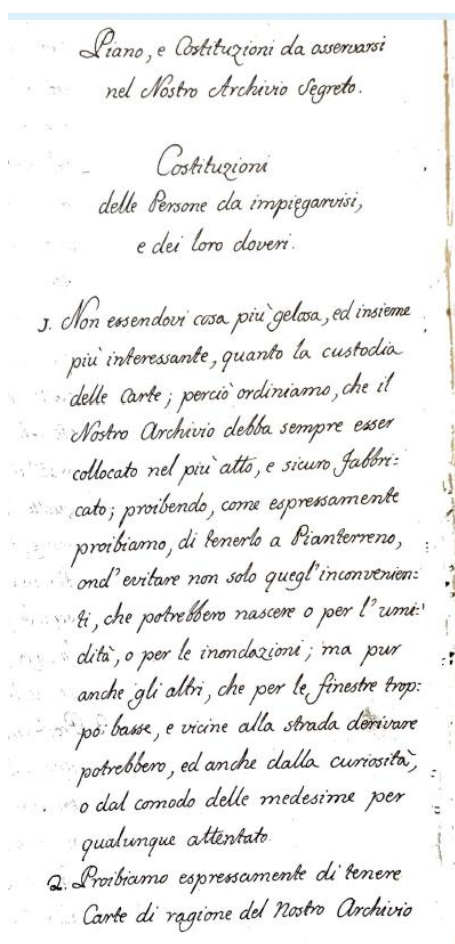 Piano, e Costituzioni da osservarsi
nel Nostro Archivio Segreto.
Costituzioni
delle Persone da impiegarvisi,
e dei loro doveri.
1. Non essendovi cosa più gelosa, ed insieme
più interessante, quanto la custodia
delle Carte; perciò ordiniamo, che il
Nostro Archivio debba sempre esser
collocato nel più atto, e sicuro Fabbri:
cato; proibendo, come espressamente
proibiamo, di tenerlo a Pianterreno,
ond'evitare non solo quegl'inconvenien:
ti, che potrebbero nascere o per l'umi:
dità, o per le inondazioni; ma pur
anche gli altri, che per le finestre trop:
po basse, e vicine alla strada derivare
potrebbero, ed anche dalla curiosità,
o dal comodo delle medesime per
qualunque attentato.
2. Proibiamo espressamente di tenere
Carte di ragione del Nostro Archivio